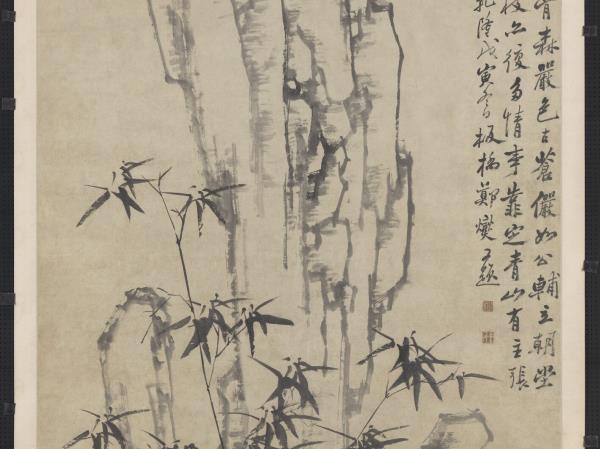 骨森嚴色古蒼儼如公輔立朝堂
枝亦復多情事靠定青山有主張
乾隆戊寅冬日板橋鄭燮又題